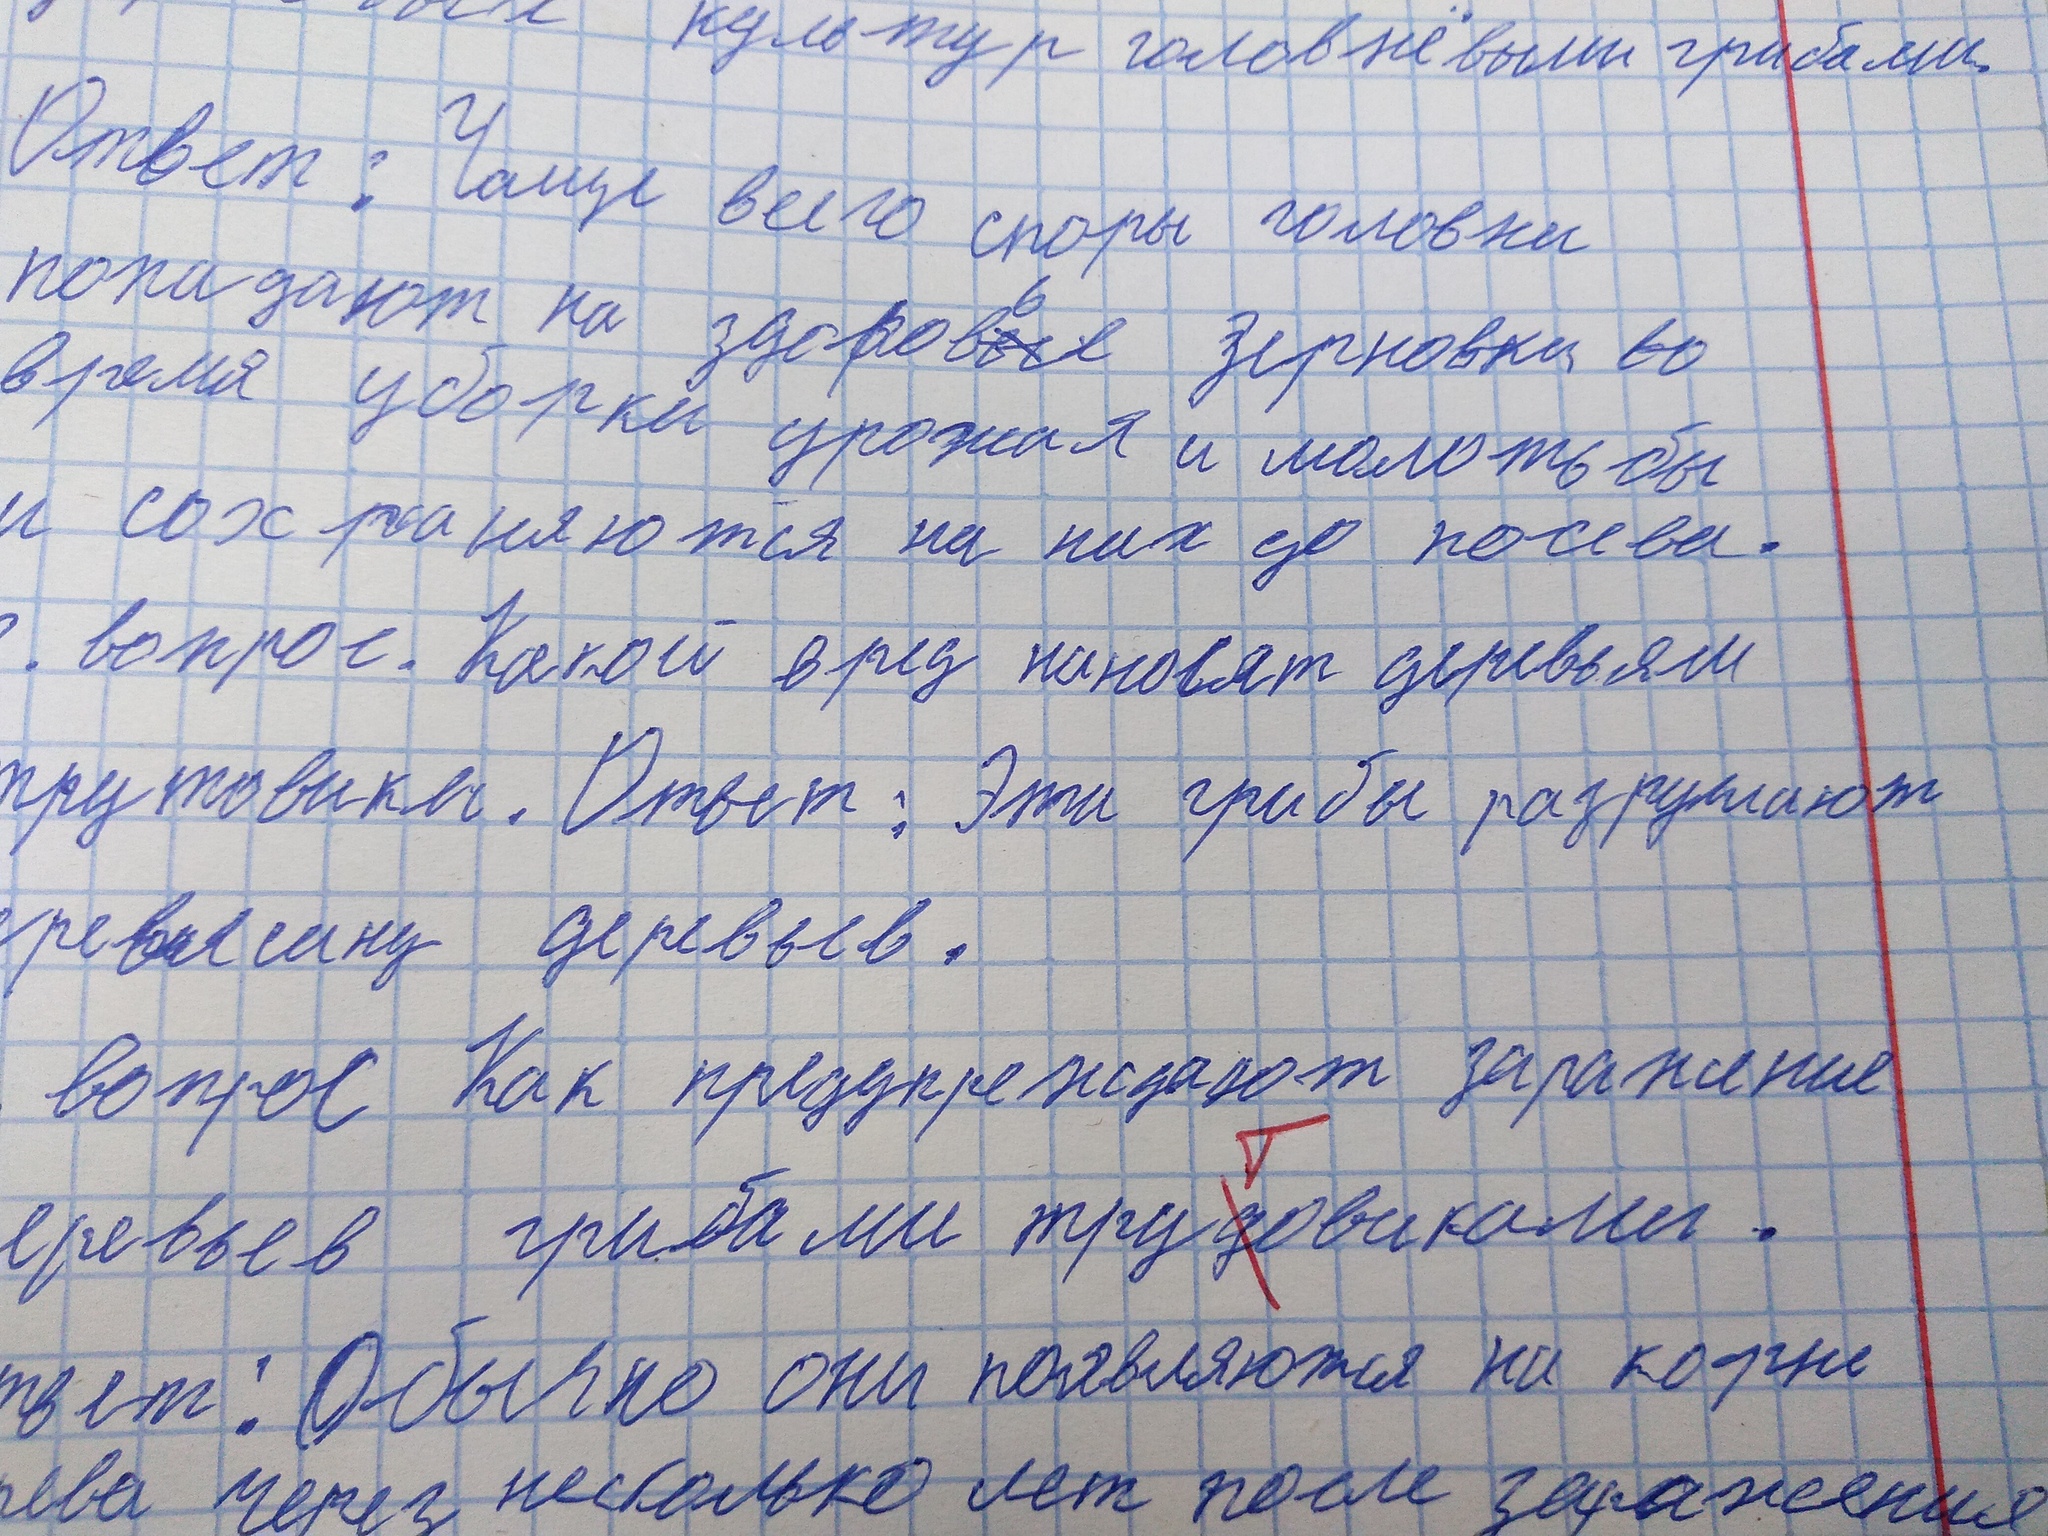 культур головнёвыми грибами.
Ответ: Чаще всего споры головни
попадают на здоровые зерновки во
время уборки урожая и молотьбы
и сохраняются на них до посева.
. вопрос. Какой вред наносят деревьям
трутовики. Ответ: Эти грибы разрушают
ревесину деревьев.
вопрос Как предупреждают заражение
еревьев грибами трудовиками.
т
твет: Обычно они появляются на корне
рева через несколько лет после заражения